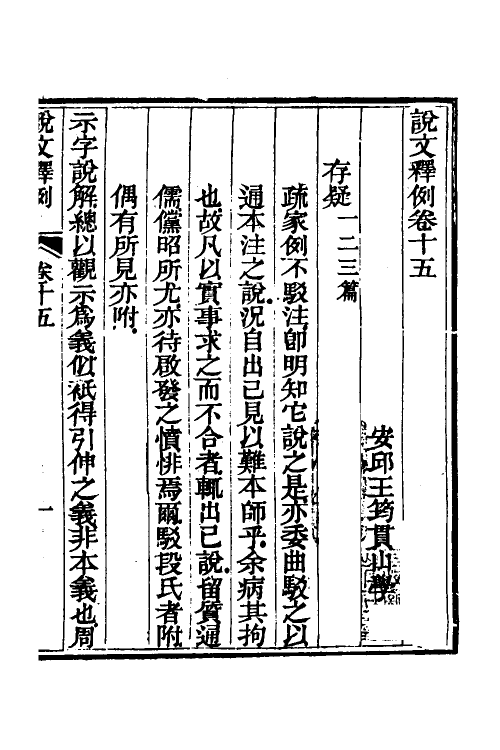 說文釋例卷十五
安邱王筠貫山學
存疑一二三篇
疏家例不駁注卽明知它說之是亦委曲駁之以
通本注之說況自出己見以難本師乎余病其拘
也故凡以實事求之而不合者輒出己說留質通
儒儻昭所尤亦待啟發之憤悱焉爾駁段氏者附
偶有所見亦咐
示字說解總以觀示爲義似祇得引伸之義非本義也周
說文釋例 卷十五 一